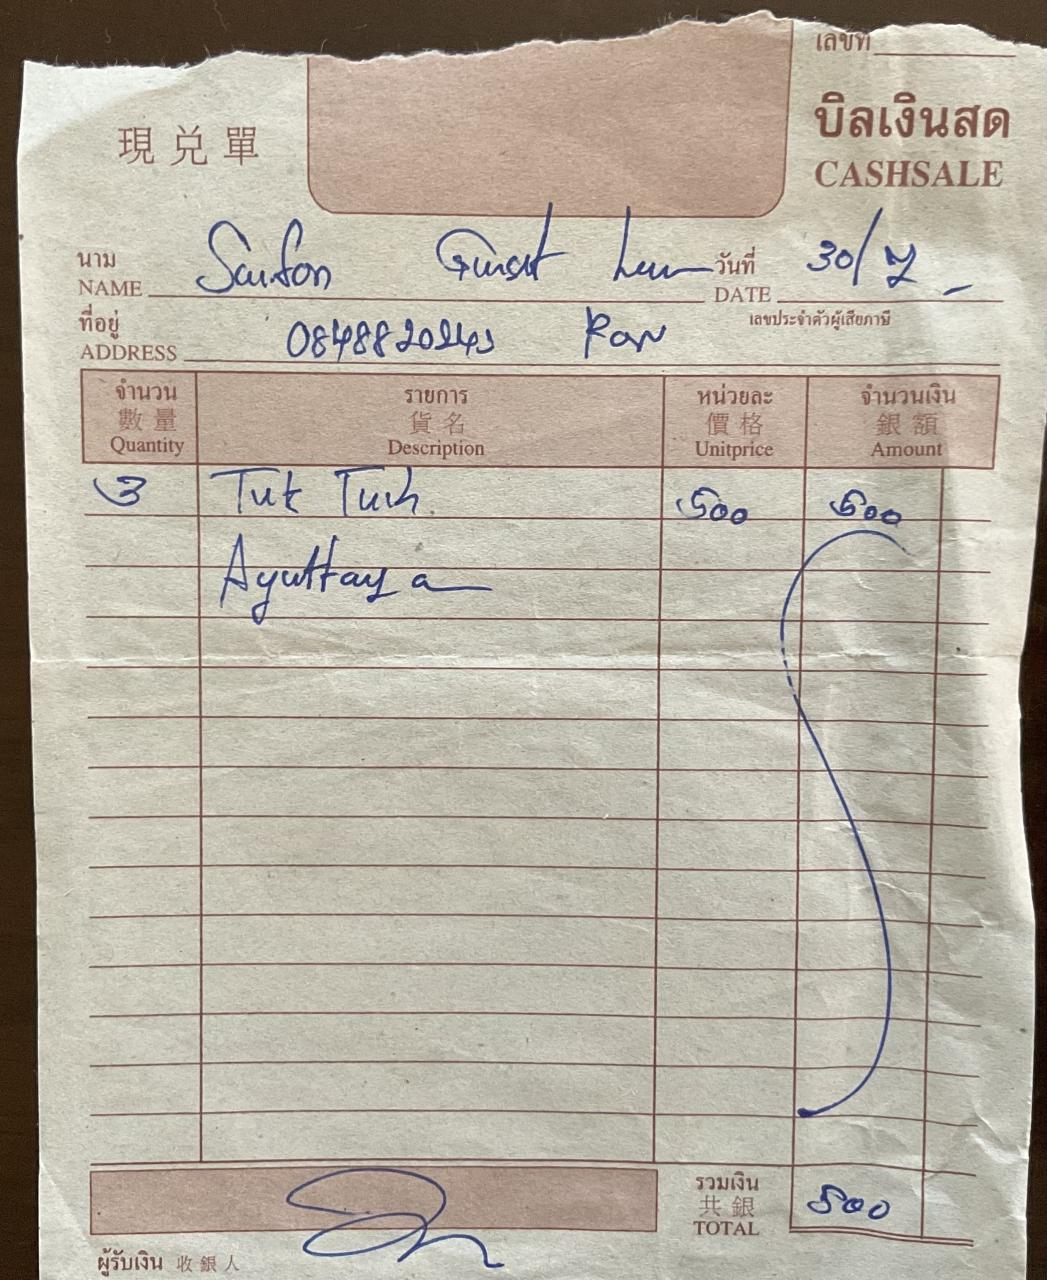 เลขที่
現兑單
บิลเงินสด
CASHSALE
นาม
NAME Saifon วันที่ 30/7
DATE
ที่อยู่ เลขประจำตัวผู้เสียภาษี
ADDRESS
จำนวน รายการ หน่วยละ จำนวนเงิน
數量 貨名 價格 銀額
Quantity Description Unitprice Amount
3 Tuk Tuk 500 500
Ayuttaya
รวมเงิน
共銀
TOTAL 500
ผู้รับเงิน 收銀人